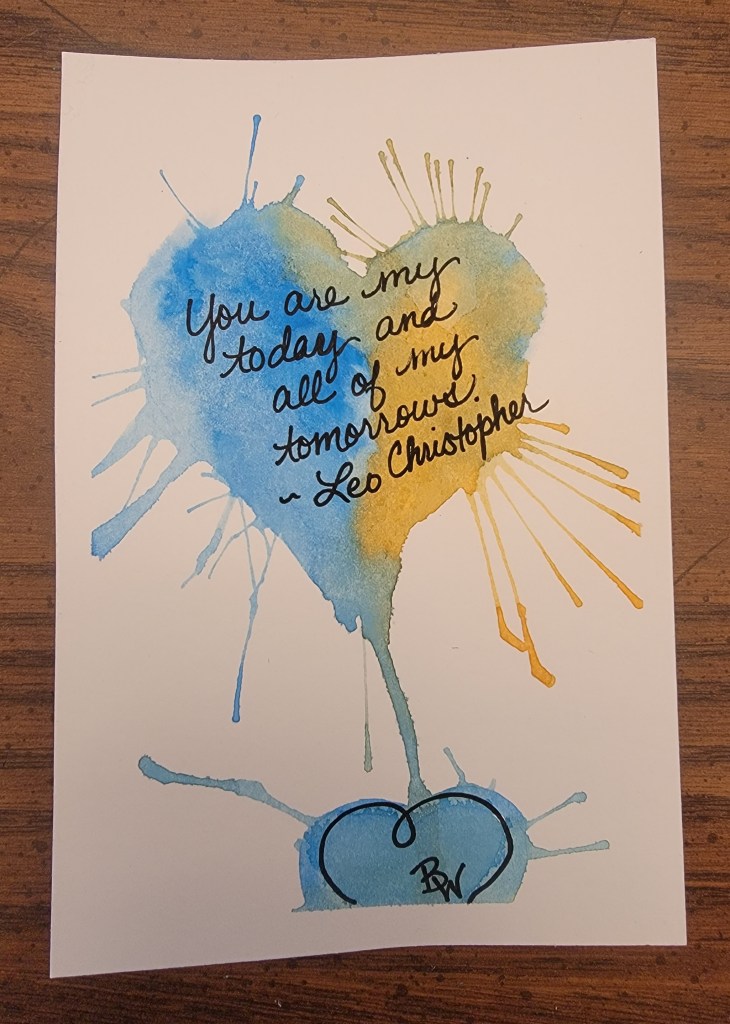 You are my
today and
all of my
tomorrows.
~ Leo Christopher
BW